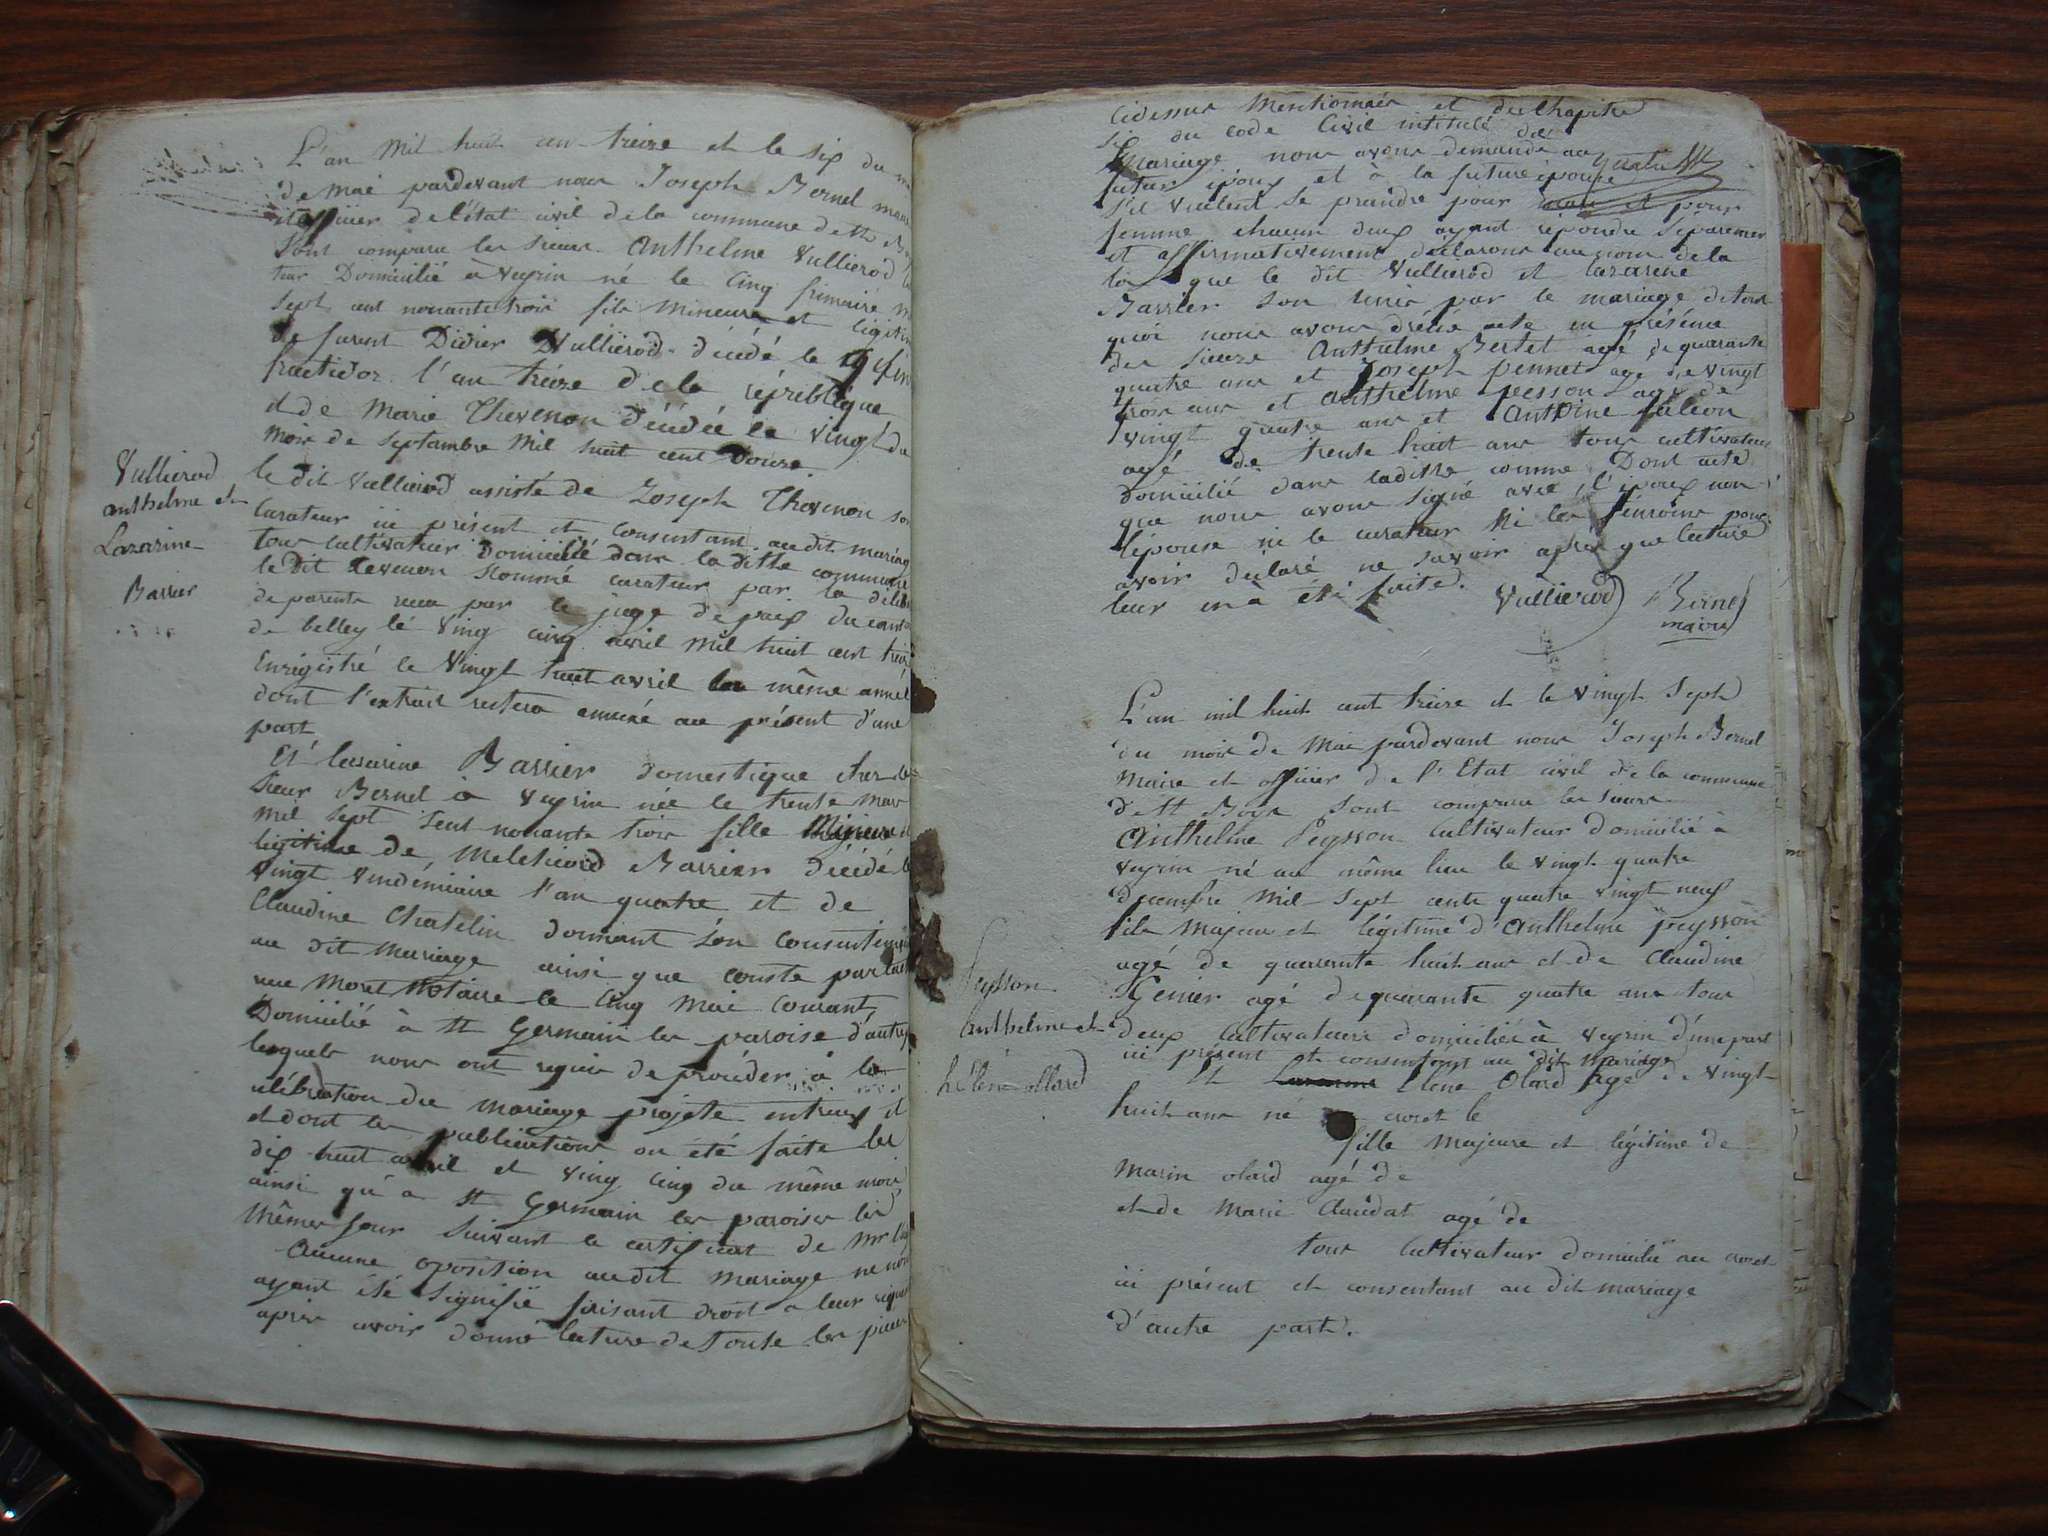 L'an mil huit cen treize et le six du
de mai pardevant nous Joseph Bernel
et officier de l'état civil de la commune de St
Sont comparu les sieurs Anthelme Vullierod
Domicilié à Veyrin né le Cinq frimaire
Sept cent nonante trois fils mineure et
de furent Didier Vullierod décédé le
fructidor l'an treize de la république
et de Marie Thevenon Décédée le vingt du
mois de Septambre mil huit cent Douze
Vullierod
anthelme et
Lazarine
Barrier
le dit Vullierod assisté de Joseph Thevenon son
Curateur ici présent et Consentant au dit mariage
tous cultivateur Domicilié dans la ditte commune
le dit Tevenon Nommé curateur par la
de parents reçu par le juge de paix du
de belley le Ving cinq avril mil huit cent
Enrigistré le Vingt huit avril la même année
dont l'extrait restera annexé au présent d'une
part
Et Lasarine Barrier domestique chez le
Sieur Bernel à Veyrin née le trente
mil sept Cent nonante trois fille Mineure
légitime de Melchiord Barrier Décédé
Vingt Vendémiaire l'an quatre et de
Claudine Chatelin donnant Son
au dit mariage ainsi que conste
Moret Notaire le Cinq Mai Courant
Domicilié à St Germain les paroise d'autre
lesquels nous ont requis de procéder à la
célébration du mariage projeté entreux
et dont les publications on été faite les
dix huit avril et ving Cinq du même mois
ainsi qu'a St Germain les paroises les
Mêmes jour Suivant le certificat de Mr
Aucune oposition audit mariage ne
ayant été Signifié faisant droit a leur
après avoir donné lecture de toute les pièces
Cidessus Mentionnés et du Chapitre
Six du Code Civil intitulé du
Mariage nous avons demandé au
futur époux et à la future épouse
S'il veulent Se prandre pour mari et pour
femme chacun deux ayant répondu Séparemen
et affirmativement déclarons au nom de la
loi que le dit Vullierod et Lazarene
Barrier Son unis par le mariage de tout
quoi nous avons dressé acte en présence
des Sieurs Anthelme Bertet agé de quarante
quatre ans et Joseph pennet age de vingt
trois ans et anthelme peesson agé de
vingt quatre ans et Antoine falcon
agé de trente huit ans tous cultivateur
domicilié dans laditte comune Dont acte
que nous avons Signé avec l'époux non
l'épouse ni le curateur Ni les témoins pour
avoir déclaré ne Savoir après que lecture
leur en a été faite. Vullierod Bernel
maire
L'an mil huit cent treize et le vingt Sept
du mois de Mai pardevant nous Joseph Bernel
Maire et officier de l'Etat civil de la commune
de St Boys Sont comparu les Sieurs
Anthelme Peysson Cultivateur domicilié à
Veyrin né au même lieu le vingt quatre
decembre Mil Sept cente quatre vingt neuf
fils Majeur et légitime d'Anthelme peysson
agé de quarente huit ans et de Claudine
Genier agé de quarante quatre ans tous
deux Cultivateurs domiciliés à Veyrin d'une part
ici présent et consentant au dit mariage
Peysson
Anthelme et
helène ollard
Et Lazarine Elene Olard agé de vingt
huit ans né croset le
fille Majeure et légitime de
Marin olard agé de
et de Marie Claudat agé de
tous Cultivateur domicilié au croset
ici présent et consentant au dit mariage
d'autre part.